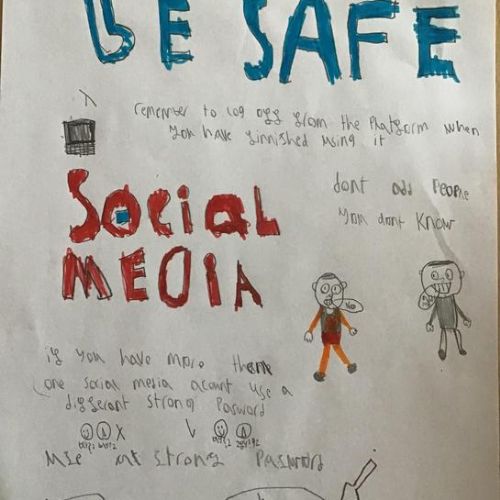 BE SAFE
remember to log off from the Platform when
you have finnished using it
Social
MEDIA
dont add People
you dont know
NO
if you have more then
one social media acount use a
differant strong Pasword
X
strong Pasword